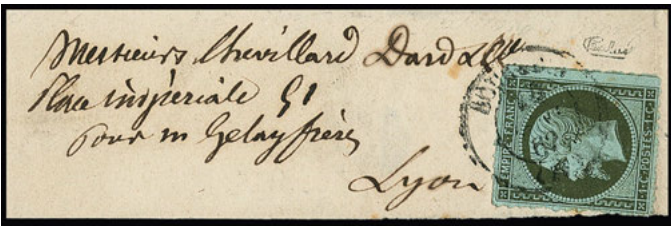 Messieurs Chevillard Dard & Cie
Place impériale 51
pour m Gelay frères
Lyon
EMPIRE FRANC
POSTES
1 C
1 C
62